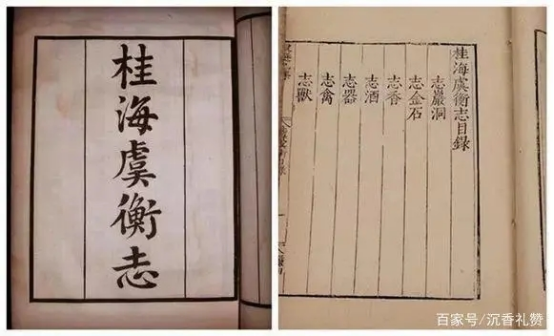 桂海虞衡志
桂海虞衡志目錄
志巖洞
志金石
志香
志酒
志器
志禽
志獸
百家号/沉香礼赞